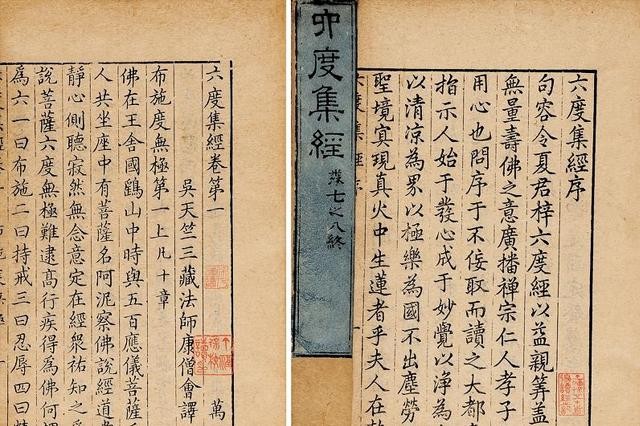 六度集經序
句容令夏君梓六度經以益親筭蓋
無量壽佛之意廣播禅宗仁人孝子
用心也問序于不佞取而讀之大都
指示人始于發心成于妙覺以淨為
以清凉為界以極樂為國不出塵勞
聖境寘現真火中生蓮者乎夫人在
六度集經
七之八終
六度集經卷第一
萬
吳天竺三藏法師康僧會譯
布施度無極第一上凡十章
佛在王舍國鷂山中時與五百應儀菩
人共坐座中有菩薩名阿泥察佛說經道
靜心側聽寂然無念意定在經眾祐知之
說菩薩六度無極難逮高行疾得為佛何
為六一曰布施二曰持戒三曰忍辱四曰